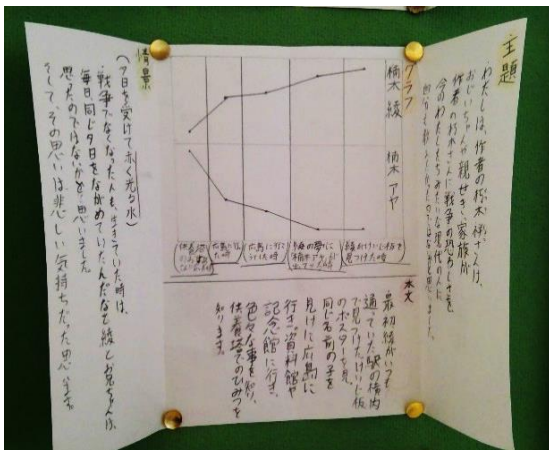 主題
わたしは、作者の朽木祥さんは、
おじいちゃんや親せき、家族が
作者の朽木さんに戦争の恐ろしさを
今のわたしたちみたいな現代の人に
思いました。
グラフ
楠木 綾
楠木 アヤ
綾がけいじ板で見つけた時
広島に行こうとした時
広島に
た時
供養塔
本文
最初綾がいつも
通っていた駅の構内
で見つけたけいじ板
のポスターを見、
同じ名前の子を
見つけに広島に
行き、資料館や
記念館に行き、
色々な事を知り、
供養塔でのひみつを
知ります。
情景
(夕日を受けて赤く光る水)
戦争でなくなった人も、生きていた時は、
毎日同じ夕日をながめていたんだなと綾とお兄ちゃんは、
思ったのではないかと思いました。
そして、その思いは悲しい気持ちだった思います。